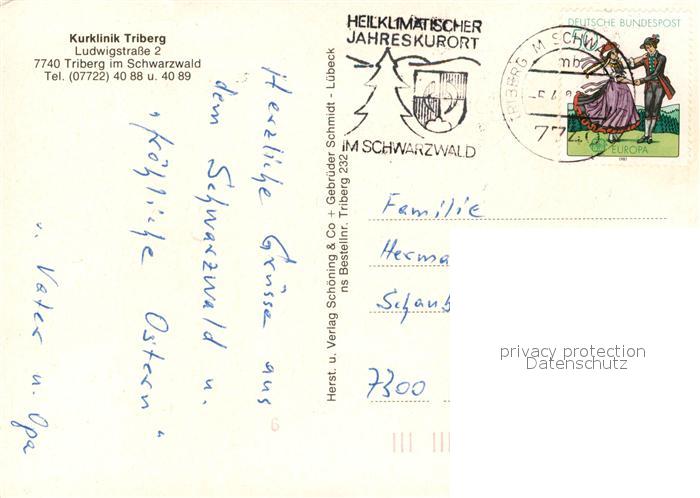 Kurklinik Triberg
Ludwigstraße 2
7740 Triberg im Schwarzwald
Tel. (07722) 40 88 u. 40 89
HEILKLIMATISCHER
JAHRESKURORT
IM SCHWARZWALD
TRIBERG IM SCHWA
mb
7740
DEUTSCHE BUNDESPOST
EUROPA
1981
Herzliche Grüsse aus
dem Schwarzwald u.
"fröhliche Ostern"
v. Vater u. Opa
Herst. u. Verlag Schöning & Co + Gebrüder Schmidt - Lübeck
ns Bestellnr. Triberg 232
Familie
Herma
Schaub
7300
6
privacy protection
Datenschutz